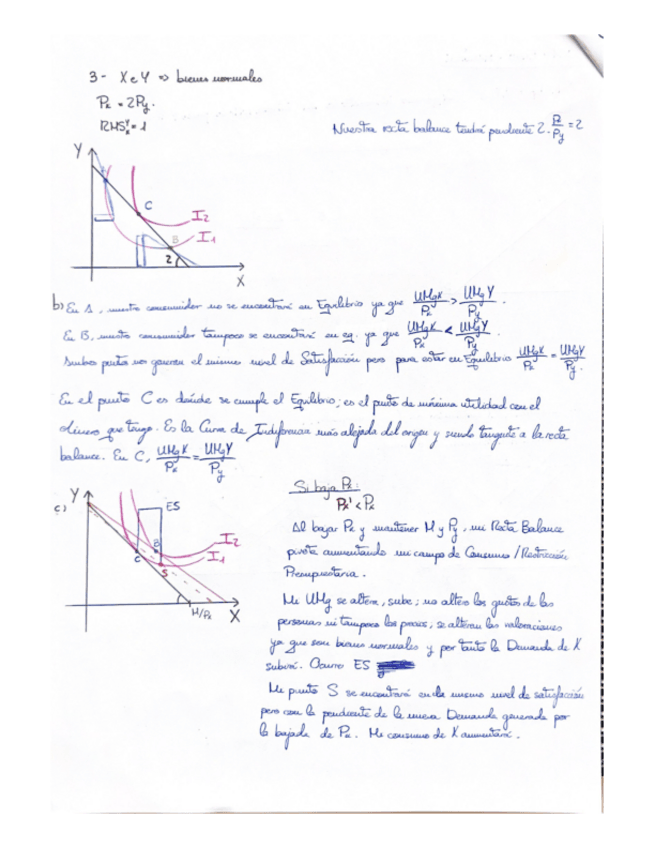 3 - X e Y => bienes normales
Px = 2Py.
RMS = 1
Nuestra recta balance tendrá pendiente 2. Px/Py = 2
Y
A
C
I2
B
I1
2
X
b) En A, nuestro consumidor no se encontrará en Equilibrio ya que UMgX/Px > UMgY/Py.
En B, nuestro consumidor tampoco se encontrará en eq. ya que UMgX/Px < UMgY/Py.
Ambos puntos nos generan el mismo nivel de Satisfacción pero para estar en Equilibrio UMgX/Px = UMgY/Py.
En el punto C es donde se cumple el Equilibrio; es el punto de máxima utilidad con el
dinero que tengo. Es la Curva de Indiferencia más alejada del origen y siendo tangente a la recta
balance. En C, UMgX/Px = UMgY/Py
Si baja Px:
Px' < Px
c)
Y
ES
B
I2
C
I1
S
M/Px
X
Al bajar Px y mantener M y Py, mi Recta Balance
pivota aumentando mi campo de Consumo / Restricción
Presupuestaria.
Mi UMg se altera, sube; no altero los gustos de las
personas ni tampoco los precios, se alteran las valoraciones
ya que son bienes normales y por tanto la Demanda de X
subirá. Ocurre ES
Mi punto S se encontrará en el mismo nivel de satisfacción
pero con la pendiente de la nueva Demanda generada por
la bajada de Px. Mi consumo de X aumentará.